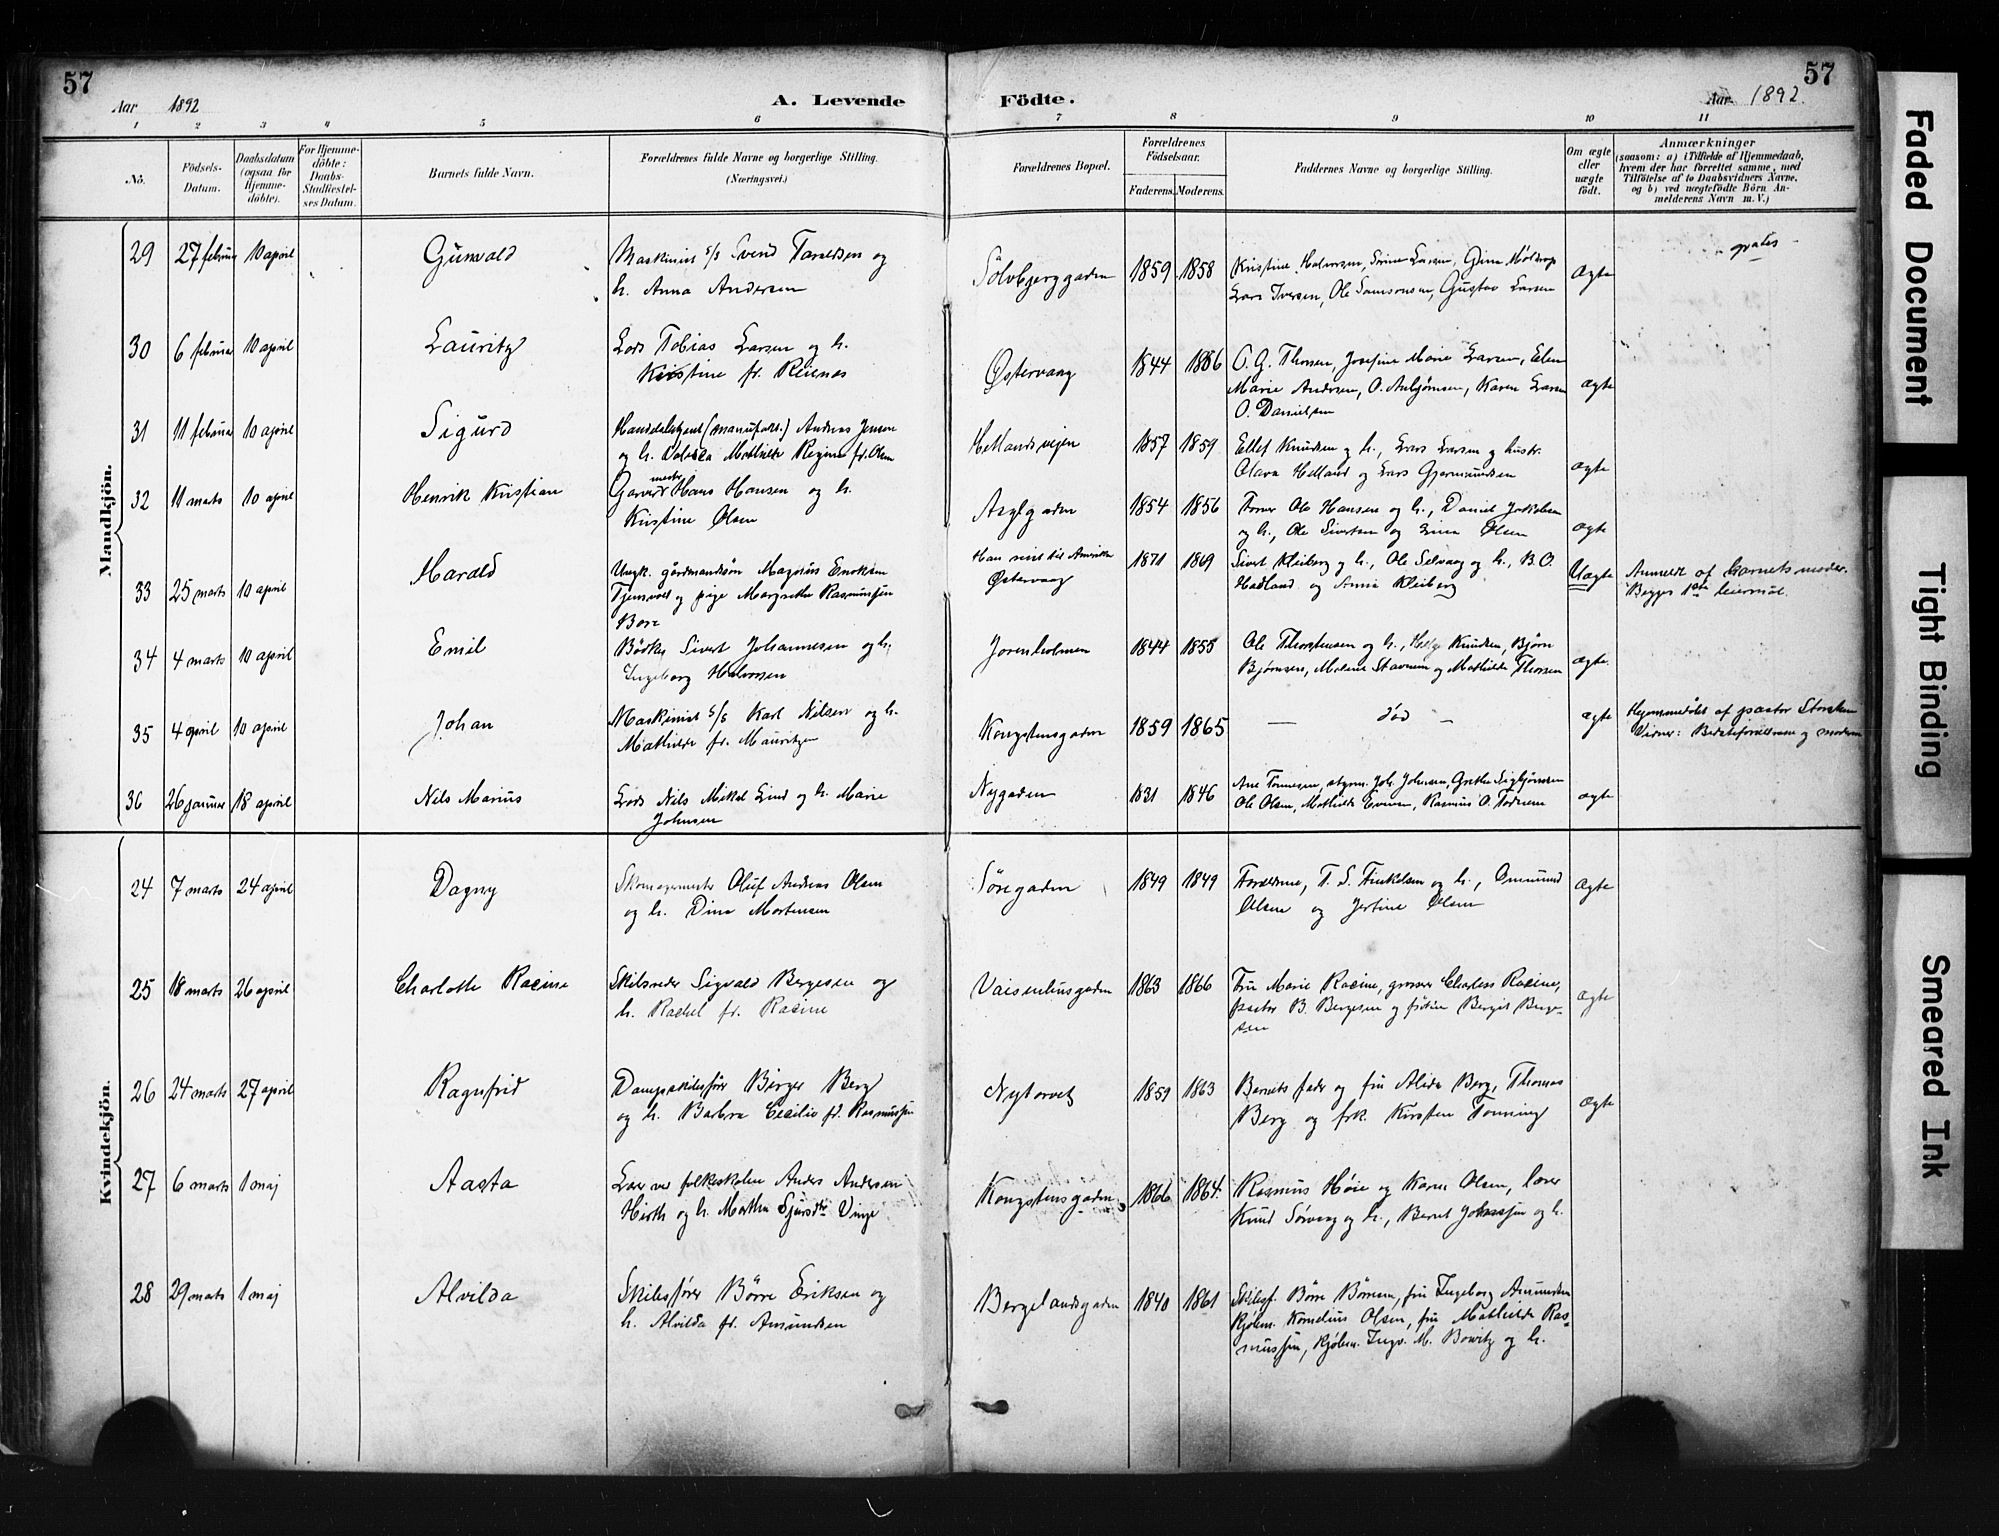 57
Aar 1892
A. Levende
Födte.
Aar 1892.
57
1 2 3 4 5 6 7 8 9 10 11
No.
Födsels-
Datum.
Daabsdatum
(ogsaa for
Hjemme-
döbte).
For Hjemme-
döbte:
Daabs-
Stadfæstel-
ses Datum.
Barnets fulde Navn.
Forældrenes fulde Navne og borgerlige Stilling.
(Næringsvei.)
Forældrenes Bopæl.
Forældrenes
Födselsaar.
Faderens. Moderens.
Faddernes Navne og borgerlige Stilling.
Om ægte
eller
uægte
födt.
Anmærkninger
(saasom: a) i Tilfælde af Hjemmedaab,
hvem der har forrettet samme, med
Tilföielse af to Daabsvidners Navne,
og b) ved uægtefödte Börn An-
melderens Navn m. V.)
Mandkjön.
29 27 februar 10 april Gunvald
Maskinist s/s Svend Taraldsen og
h. Anna Andersen
Sölvbjerggaden 1859 1858
Kristine Halvorsen, Serine Larsen, Gine
Lars Iversen, Ole Samsonsen, Gustav Larsen
Ægte
gratis
30 6 februar 10 april Lauritz
Lods Tobias Larsen og h.
Kristine fr. Reienes
Østervaag 1844 1886
O. G. Thorsen, Josefine Marie Larsen, Elen
Marie Andersen, O. Asbjörnsen, Karen Larsen
O. Danielsen
ægte
31 11 februar 10 april Sigurd
(manufakt.) Andreas Jensen
og h. Mathilde Regine fr. Olsen
Hetlandsvejen 1857 1859
Ellef Knudsen og h., Lars Larsen og hustr.
Olava Helland og Lars Gjermundsen
ægte
32 11 marts 10 april Henrik Kristian
Garvermester Hans Hansen og h.
Kristine Olsen
Asylgaden 1854 1856
Ole Hansen og h., Daniel Jakobsen
og h., Ole Sivertsen og Olsen
ægte
33 25 marts 10 april Harald
Ungk. gårdmandssön Magnus Enoksen
Tjensvold og pige Margrethe Rasmussen
Bore
Han reist til Amerika
Østervaag
1871 1869
Sivert Kleiberg og h., Ole Selvaag og h., B. O.
Hadland og Anna Kleiberg
Uægte
Anmeldt af barnets moder.
Begges 1ste leiermål.
34 4 marts 10 april Emil
Bödker Sivert Johannesen og h.
Ingeborg Halvorsen
Jorenholmen 1844 1855
Ole Thorstensen og h., Helge Knudsen, Björn
Björnsen, Malene Stavnem og Mathilde Thorsen
ægte.
35 4 april 10 april Johan
Maskinist s/s Karl Nilsen og h.
Mathilde fr. Mauritzen
Kongstensgaden 1859 1865
— död —
ægte
Hjemmedöbt af pastor
Vidner: Bedsteforældrene og moderen
36 26 januar 18 april Nils Marius
Lods Nils Mikal Lund og h. Marie
Johnsen
Nygaden 1831 1846
Ane Tönnesen, styrm. Joh. Johnsen, Grethe Sigbjörnsen
Ole Olsen, Mathilde Evensen, Rasmus O. Todnem
ægte
Kvindekjön.
24 7 marts 24 april Dagny
Skomagermester Oluf Andreas Olsen
og h. Dina Mortensen
Söregaden 1849 1849
Forældrene, T. S. Finkelsen og h., Ommund
Olsen og Jertine Olsen
Ægte
25 18 marts 26 april Charlotte Racine
Skibsreder Sigvald Bergesen og
h. Rachel fr. Racine
Vaisenhusgaden 1863 1866
Fru Marie Racine, grosser Charless Racine,
pastor B. Bergesen og fröken Bergit Berge-
sen
Ægte
26 24 marts 27 april Ragnfrid
Dampskibsförer Birger Berg
og h. Barbra Cecilie fr. Rasmussen
Nytorvet 1859 1863
Barnets fader og fru Alida Berg, Thomas
Berg og frk. Kirsten Tönning
Ægte
27 6 marts 1 maj Aasta
Lærer ved folkeskolen Anders Andersen
Hirth og h. Martha Sjursdtr. Vinje
Kongstensgaden 1866 1864.
Rasmus Höie og Karen Olsen, lærer
Knud Sörvaag og h., Bernt Johnssen og h.
28 29 marts 1 maj Alvilda
Skibsförer Börre Eriksen og
h. Alvilda fr. Amundsen
Bergelandsgaden 1840 1861
Skibsf. Börre Börresen, fru Ingeborg Amundsen
kjöbm. Kornelius Olsen, fru Mathilde Ras-
mussen, kjöbm. Ingv. M. Bowitz og h.
Faded Document
Tight Binding
Smeared Ink